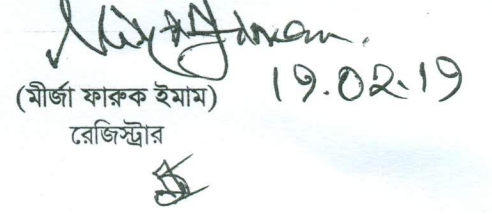 19.02.19
(মীর্জা ফারুক ইমাম)
রেজিস্ট্রার